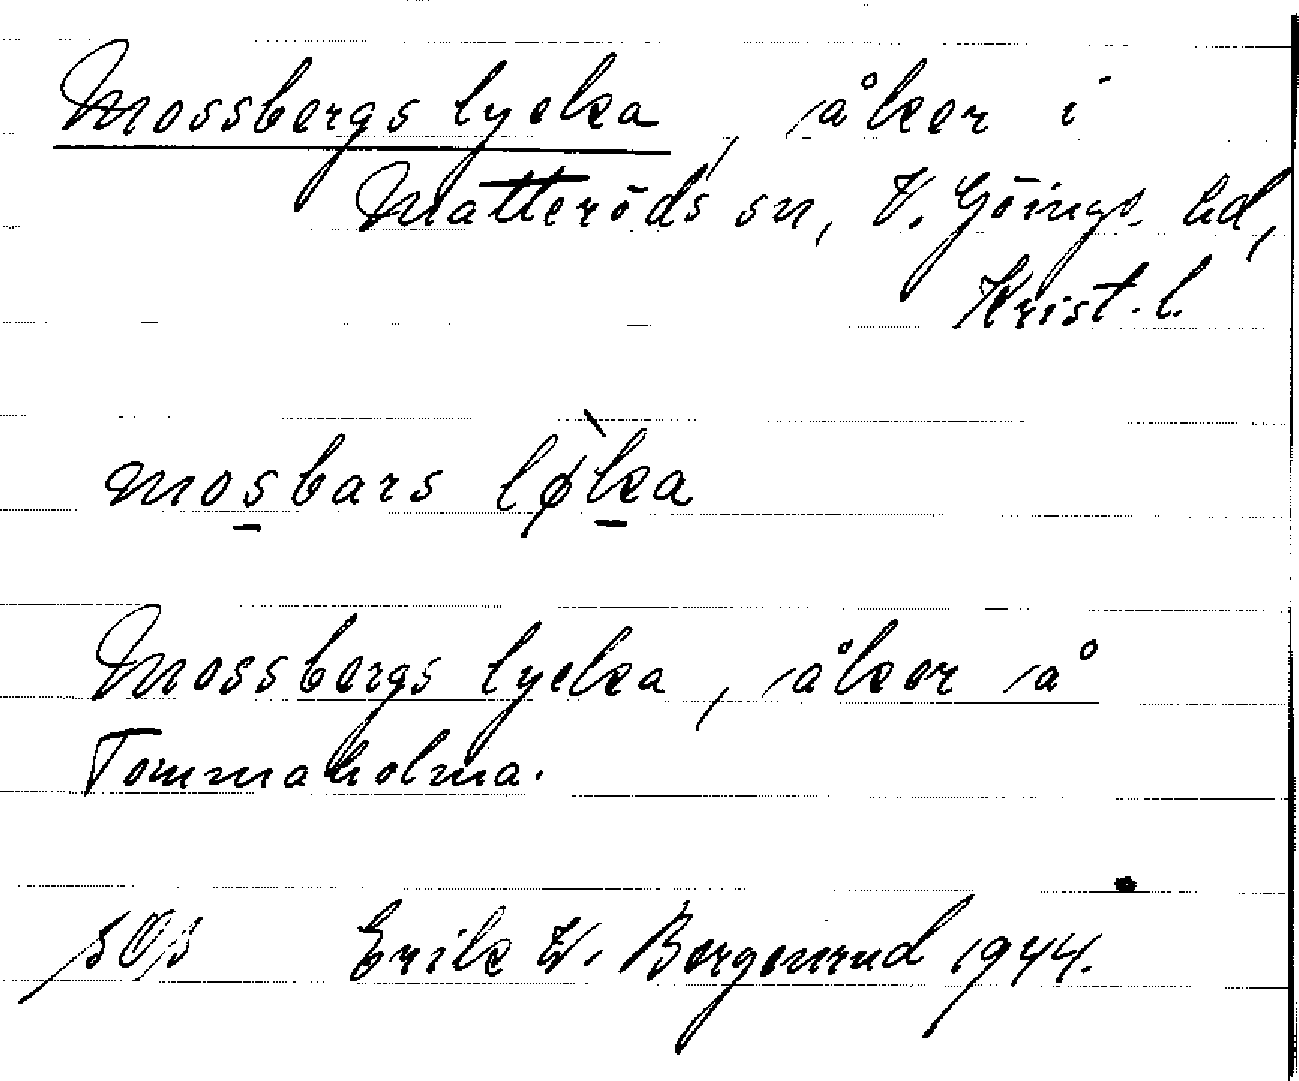 Mossbergs lycka, åker i
Matteröds sn, V. Göings hd,
Krist. l.
mos̱bars lø̀ḵa
Mossbergs lycka, åker å
Tommaholma.
Erik W. Bergenrud 1944.